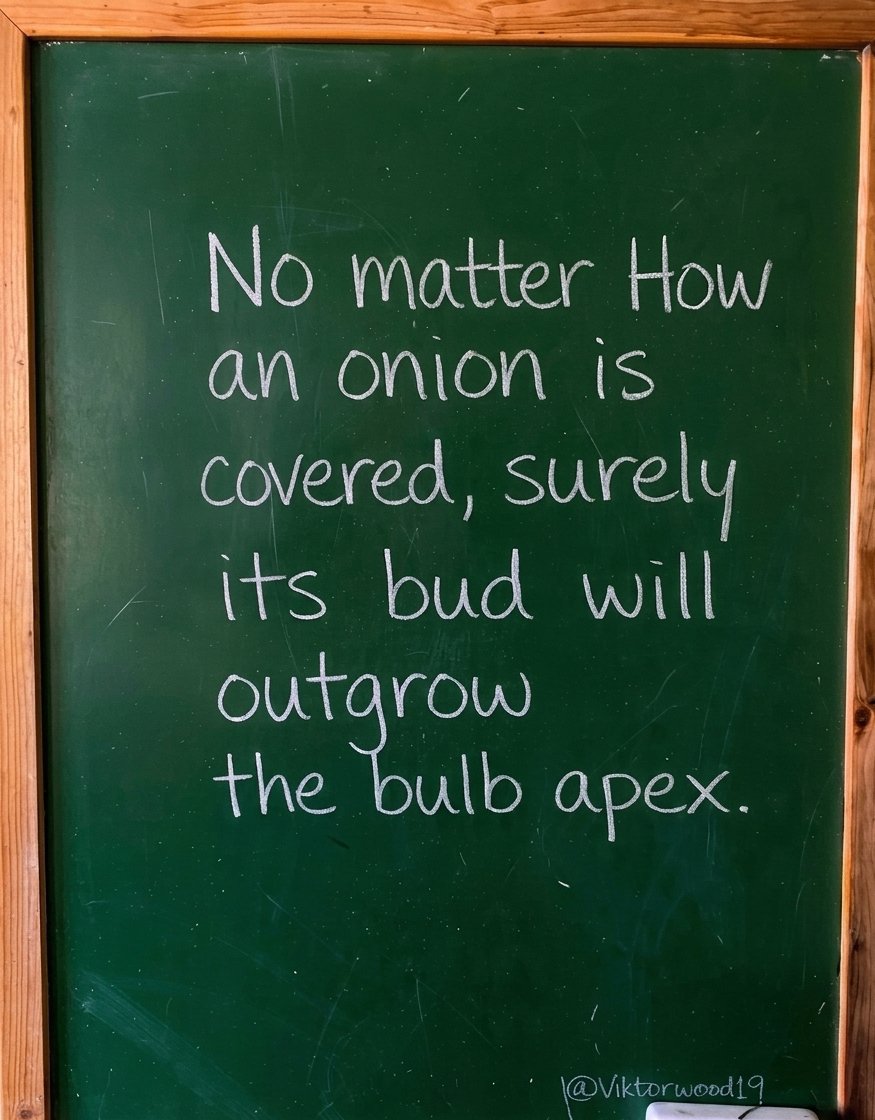 No matter How
an onion is
covered, surely
its bud will
outgrow
the bulb apex.
@Viktorwood19